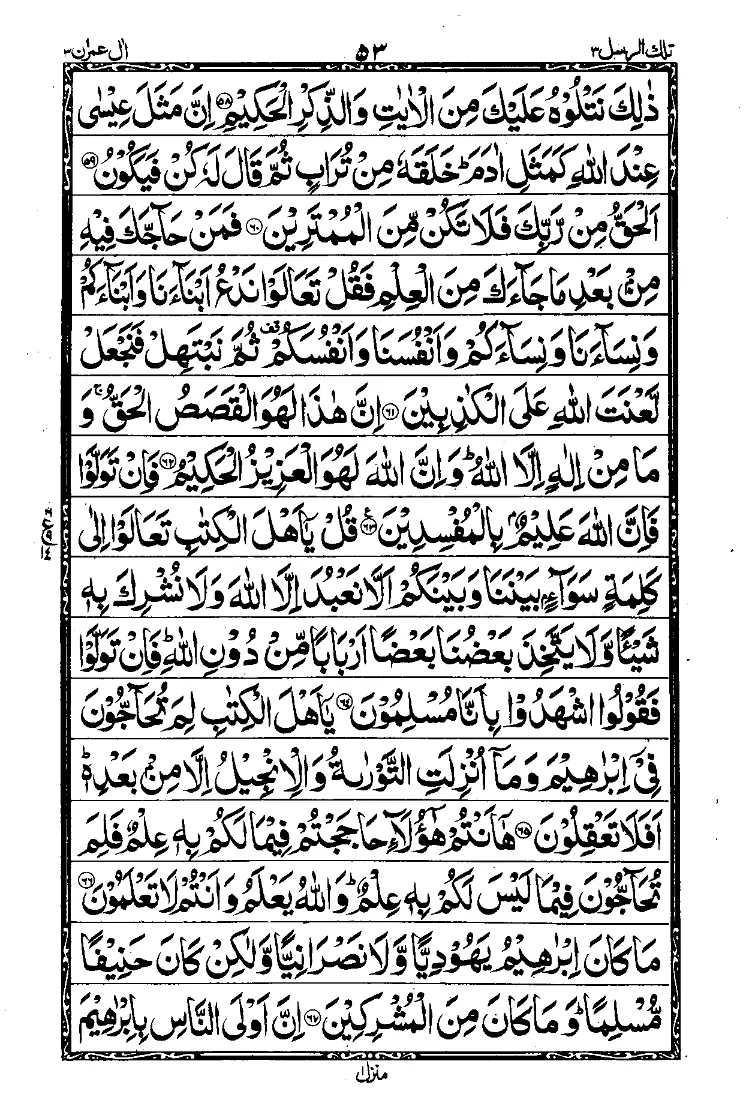 تلك الرسل ٣ ٥٣ اٰل عمرٰن ٣
ذٰلِكَ نَتْلُوْهُ عَلَيْكَ مِنَ الْاٰيٰتِ وَالذِّكْرِ الْحَكِيْمِ ﴿٥٨﴾ اِنَّ مَثَلَ عِيْسٰى
عِنْدَ اللّٰهِ كَمَثَلِ اٰدَمَ ؕ خَلَقَهٗ مِنْ تُرَابٍ ثُمَّ قَالَ لَهٗ كُنْ فَيَكُوْنُ ﴿٥٩﴾
اَلْحَقُّ مِنْ رَّبِّكَ فَلَا تَكُنْ مِّنَ الْمُمْتَرِيْنَ ﴿٦٠﴾ فَمَنْ حَآجَّكَ فِيْهِ
مِنْۢ بَعْدِ مَا جَآءَكَ مِنَ الْعِلْمِ فَقُلْ تَعَالَوْا نَدْعُ اَبْنَآءَنَا وَاَبْنَآءَكُمْ
وَنِسَآءَنَا وَنِسَآءَكُمْ وَاَنْفُسَنَا وَاَنْفُسَكُمْ ۫ ثُمَّ نَبْتَهِلْ فَنَجْعَلْ
لَّعْنَتَ اللّٰهِ عَلَى الْكٰذِبِيْنَ ﴿٦١﴾ اِنَّ هٰذَا لَهُوَ الْقَصَصُ الْحَقُّ ۚ وَ
مَا مِنْ اِلٰهٍ اِلَّا اللّٰهُ ؕ وَاِنَّ اللّٰهَ لَهُوَ الْعَزِيْزُ الْحَكِيْمُ ﴿٦٢﴾ فَاِنْ تَوَلَّوْا
فَاِنَّ اللّٰهَ عَلِيْمٌۢ بِالْمُفْسِدِيْنَ ﴿٦٣﴾ قُلْ يٰٓاَهْلَ الْكِتٰبِ تَعَالَوْا اِلٰى
كَلِمَةٍ سَوَآءٍۢ بَيْنَنَا وَبَيْنَكُمْ اَلَّا نَعْبُدَ اِلَّا اللّٰهَ وَلَا نُشْرِكَ بِهٖ
شَيْـًٔا وَّلَا يَتَّخِذَ بَعْضُنَا بَعْضًا اَرْبَابًا مِّنْ دُوْنِ اللّٰهِ ؕ فَاِنْ تَوَلَّوْا
فَقُوْلُوا اشْهَدُوْا بِاَنَّا مُسْلِمُوْنَ ﴿٦٤﴾ يٰٓاَهْلَ الْكِتٰبِ لِمَ تُحَآجُّوْنَ
فِيْۤ اِبْرٰهِيْمَ وَمَاۤ اُنْزِلَتِ التَّوْرٰىةُ وَالْاِنْجِيْلُ اِلَّا مِنْۢ بَعْدِهٖ ؕ
اَفَلَا تَعْقِلُوْنَ ﴿٦٥﴾ هٰۤاَنْتُمْ هٰۤؤُلَآءِ حَاجَجْتُمْ فِيْمَا لَكُمْ بِهٖ عِلْمٌ فَلِمَ
تُحَآجُّوْنَ فِيْمَا لَيْسَ لَكُمْ بِهٖ عِلْمٌ ؕ وَاللّٰهُ يَعْلَمُ وَاَنْتُمْ لَا تَعْلَمُوْنَ ﴿٦٦﴾
مَا كَانَ اِبْرٰهِيْمُ يَهُوْدِيًّا وَّلَا نَصْرَانِيًّا وَّلٰكِنْ كَانَ حَنِيْفًا
مُّسْلِمًا ؕ وَمَا كَانَ مِنَ الْمُشْرِكِيْنَ ﴿٦٧﴾ اِنَّ اَوْلَى النَّاسِ بِاِبْرٰهِيْمَ
منزل ١